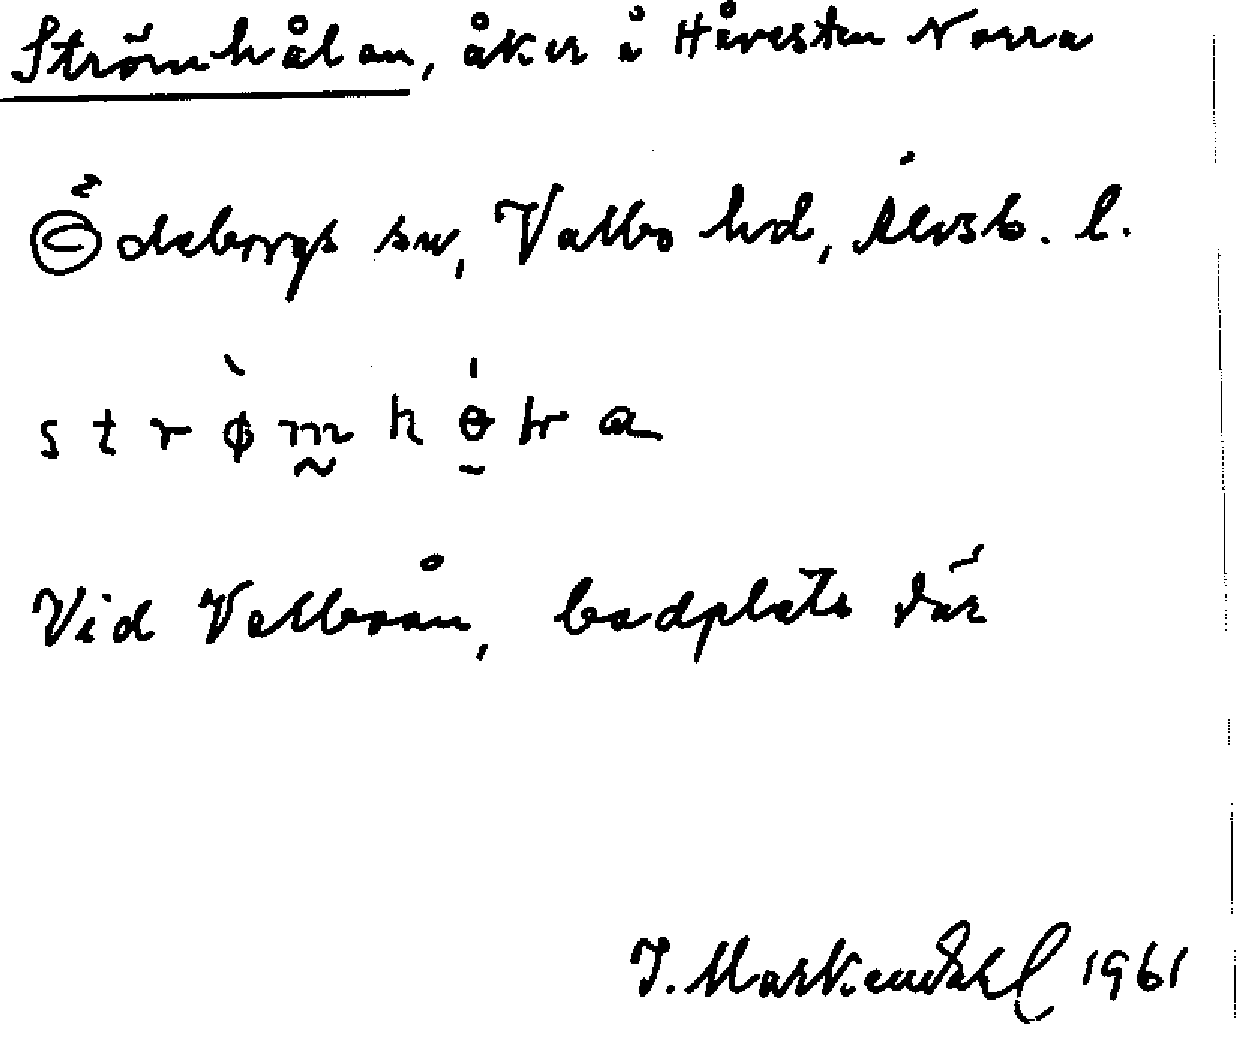 Strömhålan, åker i Håvesten Norra
Ödeborgs sn, Valbo hd, Älvsb. l.
Vid Valboån, badplats där
J. Markendahl 1961